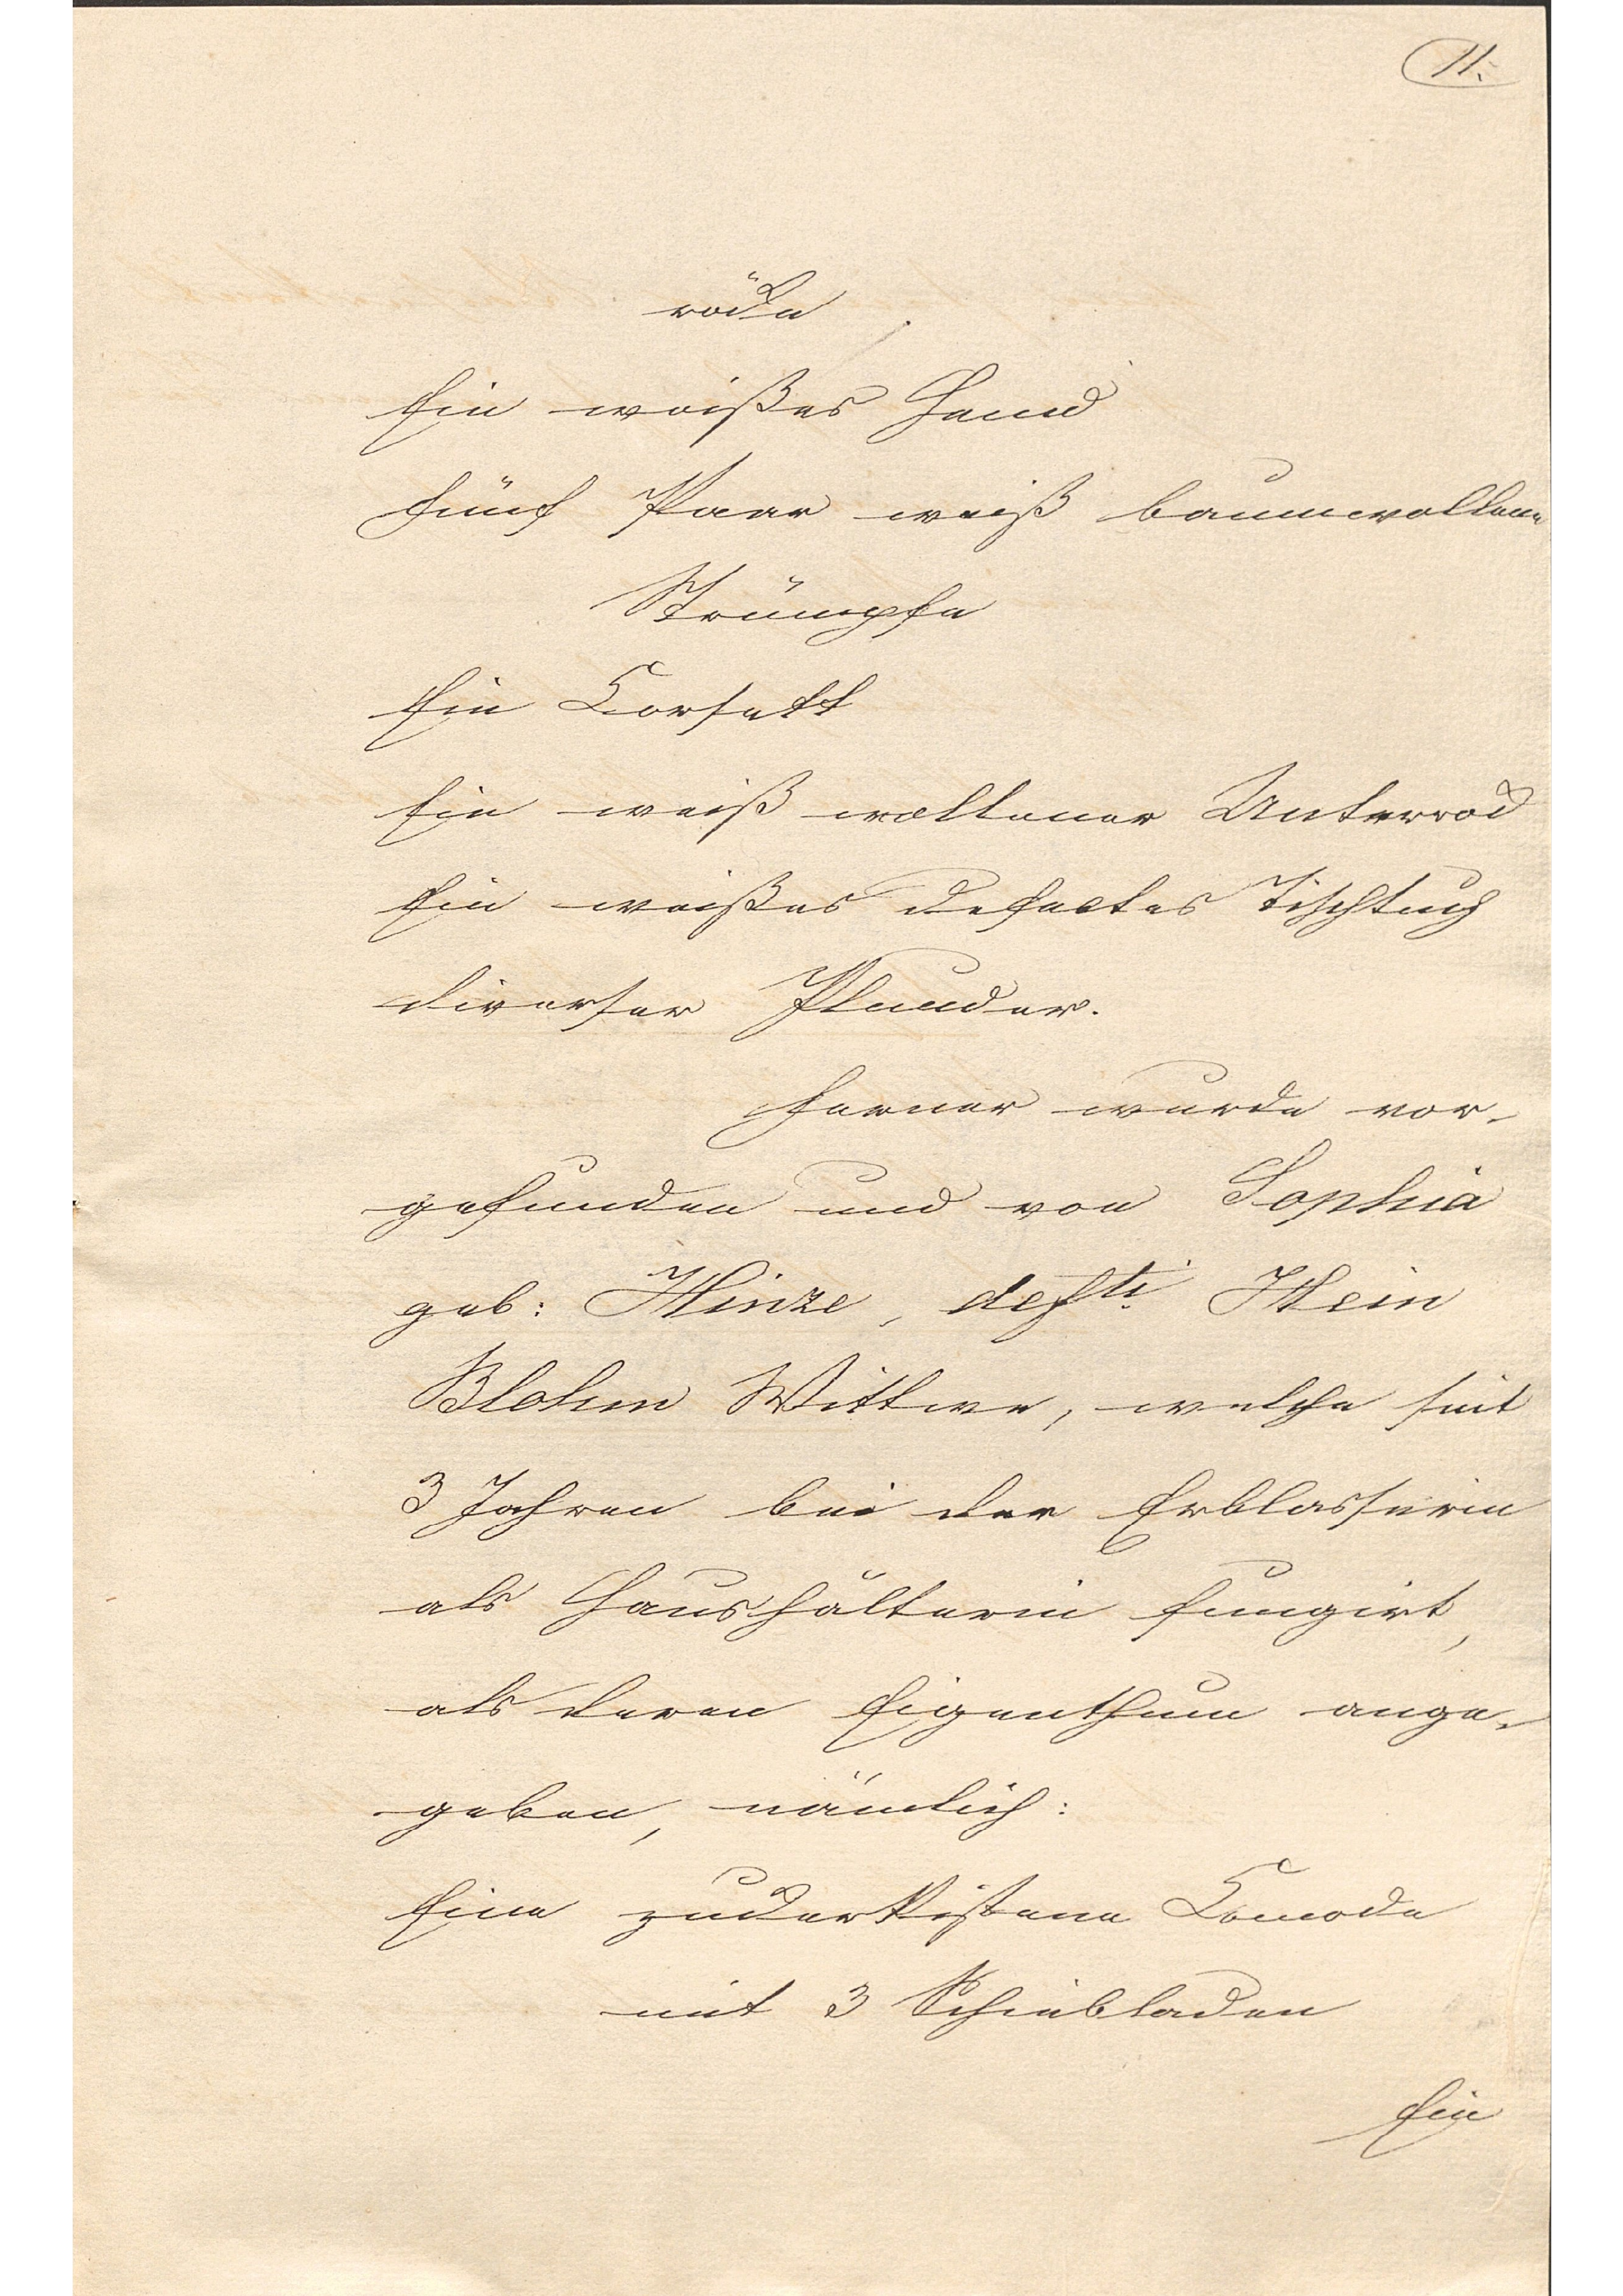 11.
röcke
Ein weißes Hemd
Fünf Paar weiß baumwollene
Strümpfe
Ein Corsett
Ein weiß wollener Unterrock
Ein weißes defectes Tischtuch
diverser Plunder.
Ferner wurde vor-
gefunden und von Sophia
geb: Hinze, defti Hein
Blohm Wittwe, welche seit
3 Jahren bei der Erblasserin
als Haushälterin fungirt,
als deren Eigenthum ange-
geben, nämlich:
Eine zuckerkistene Comode
mit 3 Schiebladen
Ein